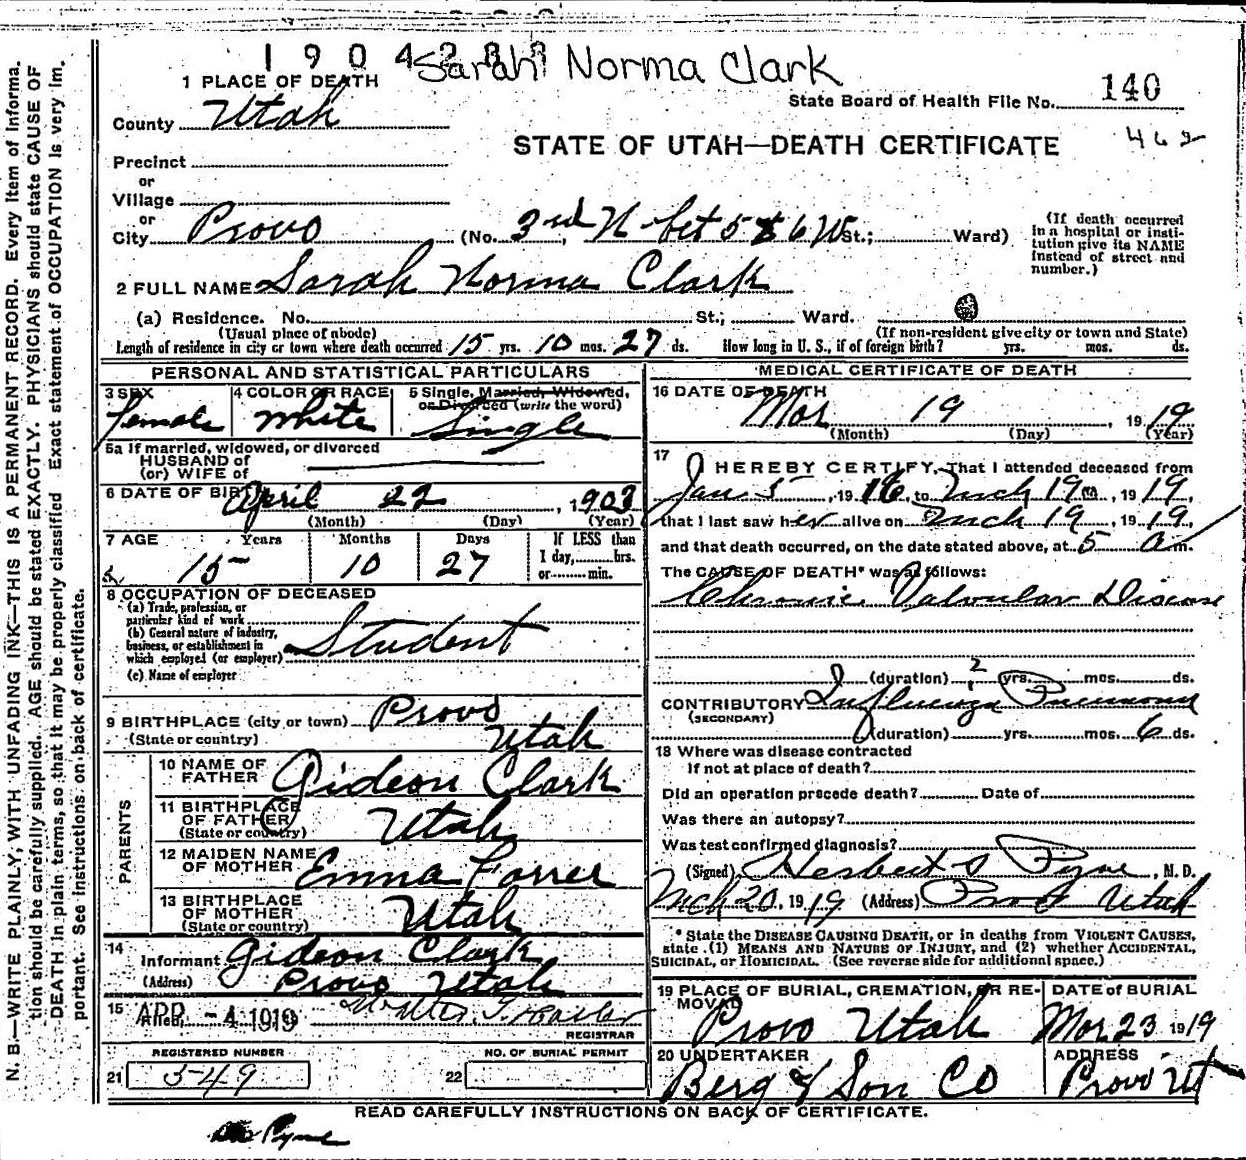 1904288 Sarah Norma Clark
1 PLACE OF DEATH
State Board of Health File No. 140
County Utah
STATE OF UTAH—DEATH CERTIFICATE
462
Precinct
or
Village
or
City Provo (No. 3rd N bet 5 & 6 W St.; Ward)
(If death occurred in a hospital or insti-
tution give its NAME
instead of street and
number.)
2 FULL NAME Sarah Norma Clark
(a) Residence. No. St.; Ward.
(Usual place of abode) (If non-resident give city or town and State)
Length of residence in city or town where death occurred 15 yrs. 10 mos. 27 ds. How long in U. S., if of foreign birth? yrs. mos. ds.
PERSONAL AND STATISTICAL PARTICULARS
3 SEX female
4 COLOR OR RACE White
5 Single, Married, Widowed,
or Divorced (write the word)
Single
5a If married, widowed, or divorced
HUSBAND of
(or) WIFE of
6 DATE OF BIRTH April 22, 1903
(Month) (Day) (Year)
7 AGE Years Months Days If LESS than
1 day, hrs.
or min.
15 10 27
8 OCCUPATION OF DECEASED
(a) Trade, profession, or
particular kind of work
(b) General nature of industry,
business, or establishment in
which employed (or employer) Student
(c) Name of employer
9 BIRTHPLACE (city or town) Provo
(State or country) Utah
PARENTS
10 NAME OF
FATHER Gideon Clark
11 BIRTHPLACE
OF FATHER
(State or country) Utah
12 MAIDEN NAME
OF MOTHER Emma Forrer
13 BIRTHPLACE
OF MOTHER
(State or country) Utah
14
Informant Gideon Clark
(Address) Provo Utah
15 Filed APR -4 1919
REGISTRAR
REGISTERED NUMBER
21 549
NO. OF BURIAL PERMIT
22
MEDICAL CERTIFICATE OF DEATH
16 DATE OF DEATH
Mar 19, 1919
(Month) (Day) (Year)
17
I HEREBY CERTIFY, That I attended deceased from
Jan 5, 1916 to Mch 19, 1919,
that I last saw her alive on Mch 19, 1919,
and that death occurred, on the date stated above, at 5 a m.
The CAUSE OF DEATH* was as follows:
Chronic Valvular Disease
(duration) 2 yrs. mos. ds.
CONTRIBUTORY Influenza Pneumonia
(SECONDARY)
(duration) yrs. mos. 6 ds.
18 Where was disease contracted
If not at place of death?
Did an operation precede death? Date of
Was there an autopsy?
Was test confirmed diagnosis?
(Signed) Herbert S Pyne, M. D.
Mch 20, 1919 (Address) Provo Utah
* State the DISEASE CAUSING DEATH, or in deaths from VIOLENT CAUSES,
state (1) MEANS AND NATURE OF INJURY, and (2) whether ACCIDENTAL,
SUICIDAL, or HOMICIDAL. (See reverse side for additional space.)
19 PLACE OF BURIAL, CREMATION, OR RE-
MOVAL
Provo Utah
DATE OF BURIAL
Mar 23 1919
20 UNDERTAKER
Berg & Son Co
ADDRESS
Provo Ut
READ CAREFULLY INSTRUCTIONS ON BACK OF CERTIFICATE.
Pyne
N. B.—WRITE PLAINLY, WITH UNFADING INK—THIS IS A PERMANENT RECORD. Every item of informa-
tion should be carefully supplied. AGE should be stated EXACTLY. PHYSICIANS should state CAUSE OF
DEATH in plain terms, so that it may be properly classified. Exact statement of OCCUPATION is very im-
portant. See instructions on back of certificate.